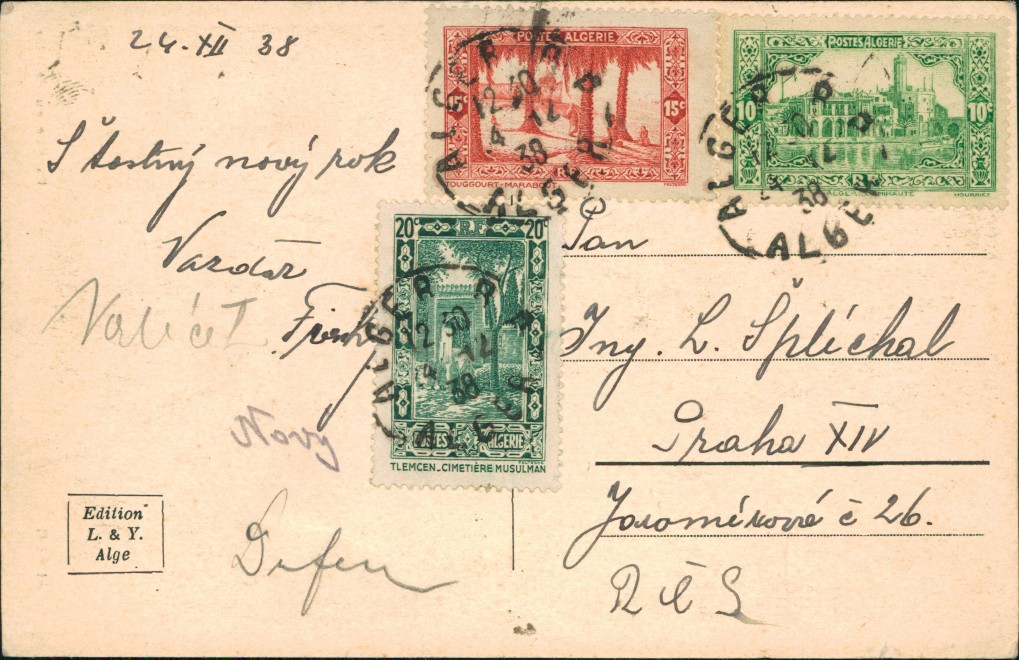 24. XII 38
Šťastný nový rok
Vardar
Nový
Edition
L. & Y.
Alge
POSTES ALGERIE
15c 15c
TOUGGOURT-MARABOUT
POSTES ALGERIE
10c 10c
RF
20c R.F 20c
POSTES ALGERIE
TLEMCEN_CIMETIÈRE MUSULMAN
ALGER R.P ALGER
12 30
24 12
38
Pan
Ing. L. Šplíchal
Praha XIV
Jaromírová č 26.
RČS